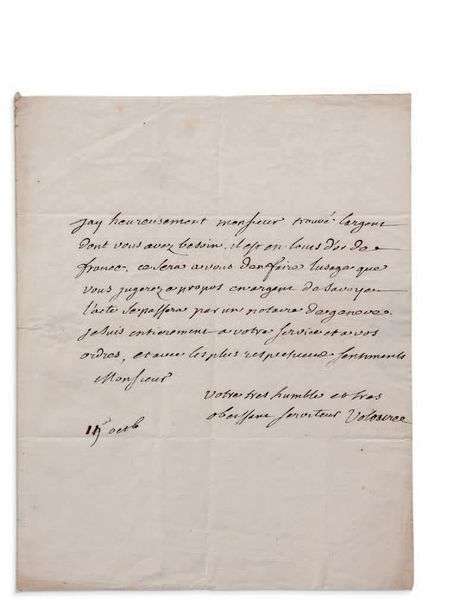 jay heureusement monsieur trouvé largent
dont vous avez besoin. il est en louis d'or de
france. ce sera a vous den faire lusage que
vous jugerez a propos en argent de savoye
l'acte se passera par un notaire de geneve.
je suis entierement a votre service et a vos
ordres, et avec les plus respectueux sentiments
Monsieur
votre tres humble et tres
obeissant serviteur Voltaire
15 octb